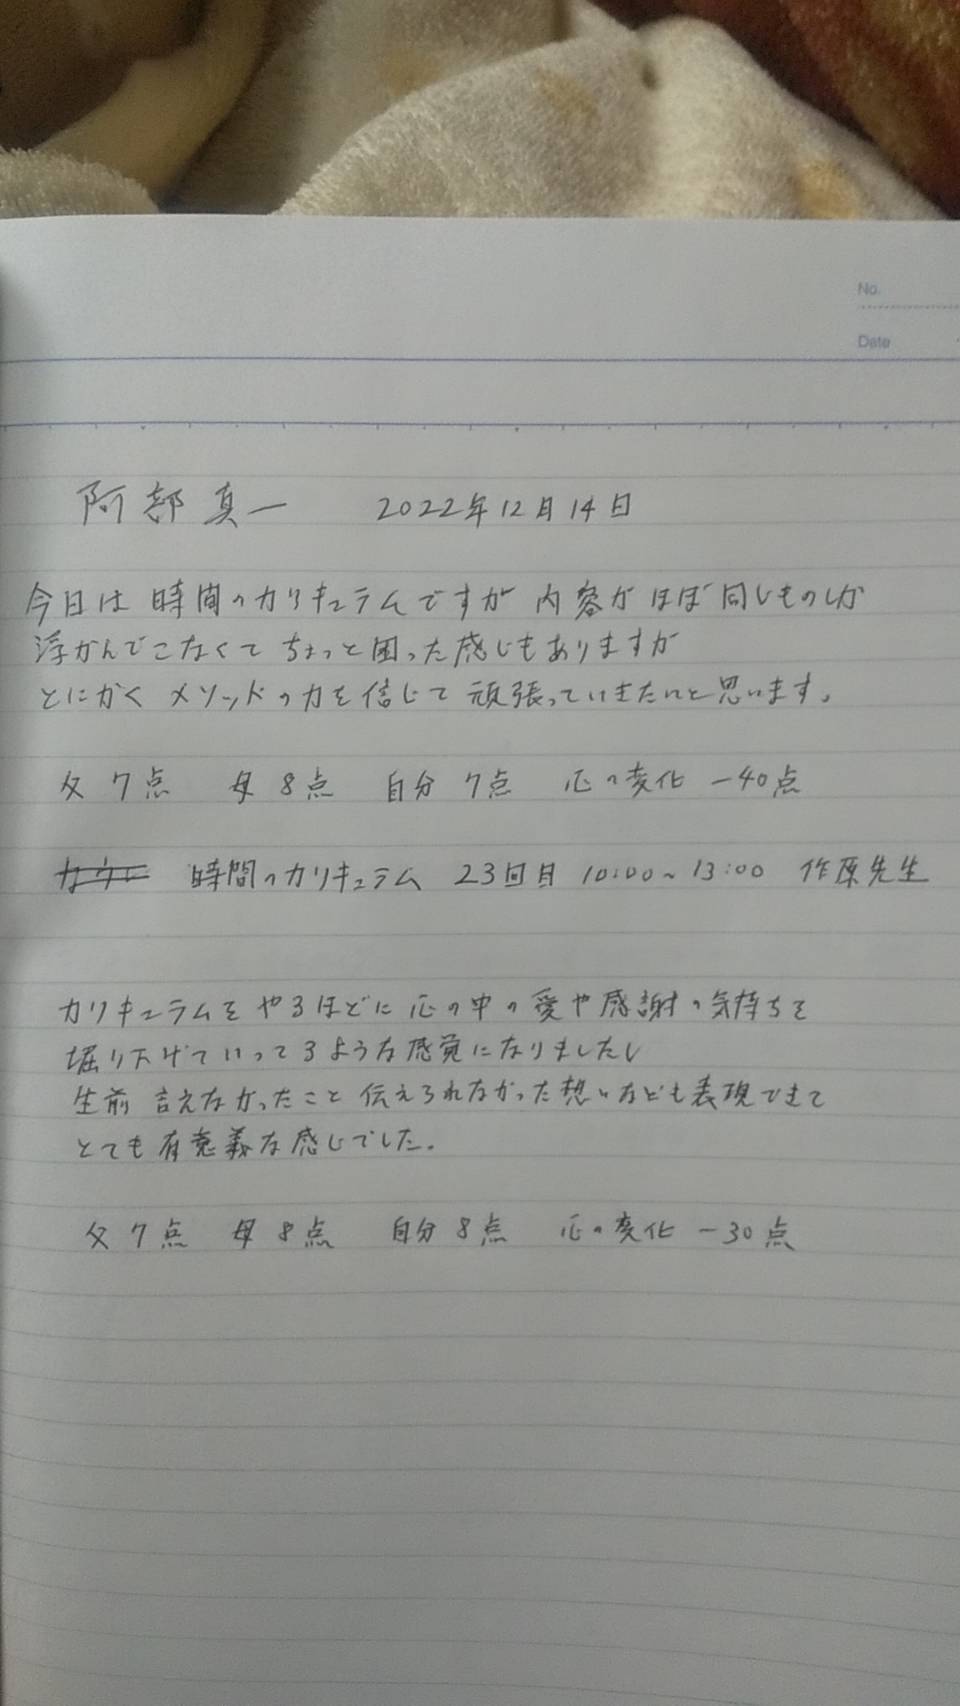 No.
Date
阿部真一 2022年12月14日
今日は時間のカリキュラムですが 内容がほぼ同じものしか
浮かんでこなくて ちょっと困った感じもありますが
とにかく メソッドの力を信じて 頑張っていきたいと思います。
父 7点 母 8点 自分 7点 心の変化 -40点
時間のカリキュラム 23回目 10:00~13:00 作原先生
カリキュラムをやるほどに 心の中の愛や感謝の気持ちを
堀り下げていってるような感覚になりましたし
生前 言えなかったこと 伝えられなかった想いなども表現できて
とても有意義な感じでした。
父 7点 母 8点 自分 8点 心の変化 -30点